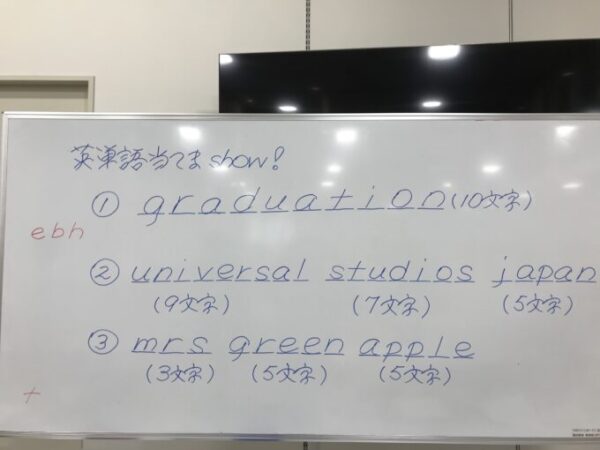 英単語当てまshow!
① graduation(10文字)
ebh
② universal studios japan
(9文字) (7文字) (5文字)
③ mrs green apple
(3文字) (5文字) (5文字)
t